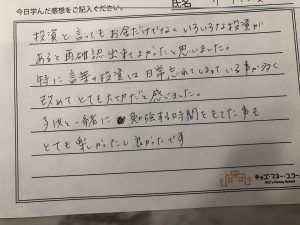 今日学んだ感想をご記入ください。
氏名
投資と言ってもお金だけでなくいろいろな投資が
あると再確認出来てよかったと思いました。
特に言葉の投資は日常忘れてしまっている事が多く
改めてとても大切だと感じました。
子供と一緒に勉強する時間をもてた事も
とても楽しかったし良かったです
キッズ・マネー・スクール
Kid's Money School